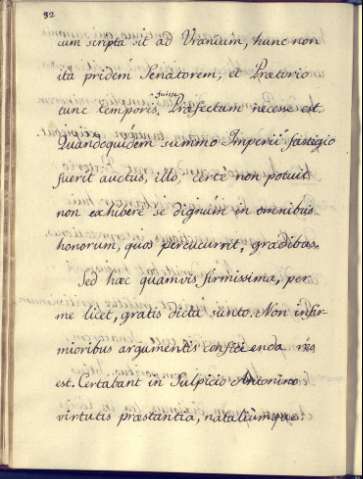 32
cum scripta sit ad Vranium, hunc non
ita pridem Senatorem, et Prætorio
fuisse
tunc temporis, Præfectum necesse est.
Quandoquidem summo Imperii fastigio
fuerit auctus, illo, certe non potuit
non exhibere se dignum in omnibus
honorum, quos percucurrit, gradibus.
Sed hæc quamvis firmissima, per
me licet, gratis dicta sunto. Non infir-
mioribus argumentis conficienda res
est. Certabant in Sulpicio Antonino
virtutis præstantia, nataliumque